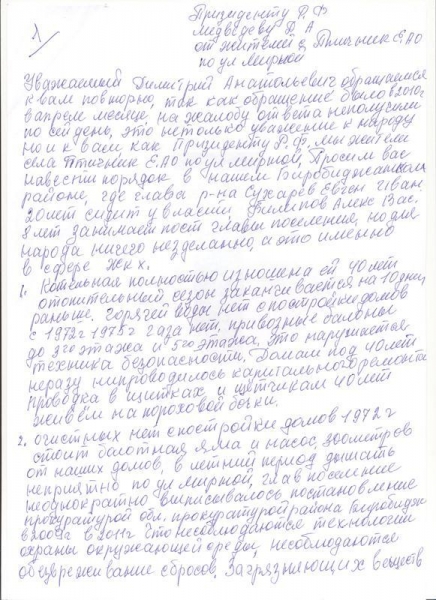 1)
Призиденту Р.Ф
Медведеву Д.А
от жителей с Птичник ЕАО
по ул Мирной
Уважаемый Димитрий Анатольевич обращаемся
к вам повторно, так как обращение было в 2010г
в апреле месяце, на жалобу ответа неполучили
по сей день, это нетолько уважение к народу
но и к вам как Призиденту Р.Ф. мы жители
села Птичник ЕАО по ул мирной, Просим вас
навести порядок в нашем Биробиджанском
районе, где глава р-на Сухарев Евген Иван.
20 лет сидит у власти Филипов Алекс Вас.
8 лет занимает пост главы поселения, но для
народа ничего незделанно, а это именно
в сфере жкх.
1. Котельная полностью изношена ей 40 лет
отопительный сезон заканчивается на 10 дней
раньше. Горячей воды нет с постройки домов
с 1972г 1978г газа нет, привозные балоны
до 3его этажа и 5го этажа, это нарушается
техника безопасности. Домам под 40 лет
неразу нипроводилось капитального ремонта
Проводка в щитках и щетчикам 40 лет
живём на пороховой бочки.
2. очистных нет с постройки домов 1972г
стоит болотная яма и насос, 300метров
от наших домов, в летний период дышать
неприятно по ул мирной, глав поселение
неоднократно выписывалось постановление
прокуратурой обл. прокуратурой района Биробидж
в 2009г в 2011г что несоблюдаются технологии
охраны окружающей среды, несоблюдаются
обезвреживание сбросов, Загрязняющих веществ